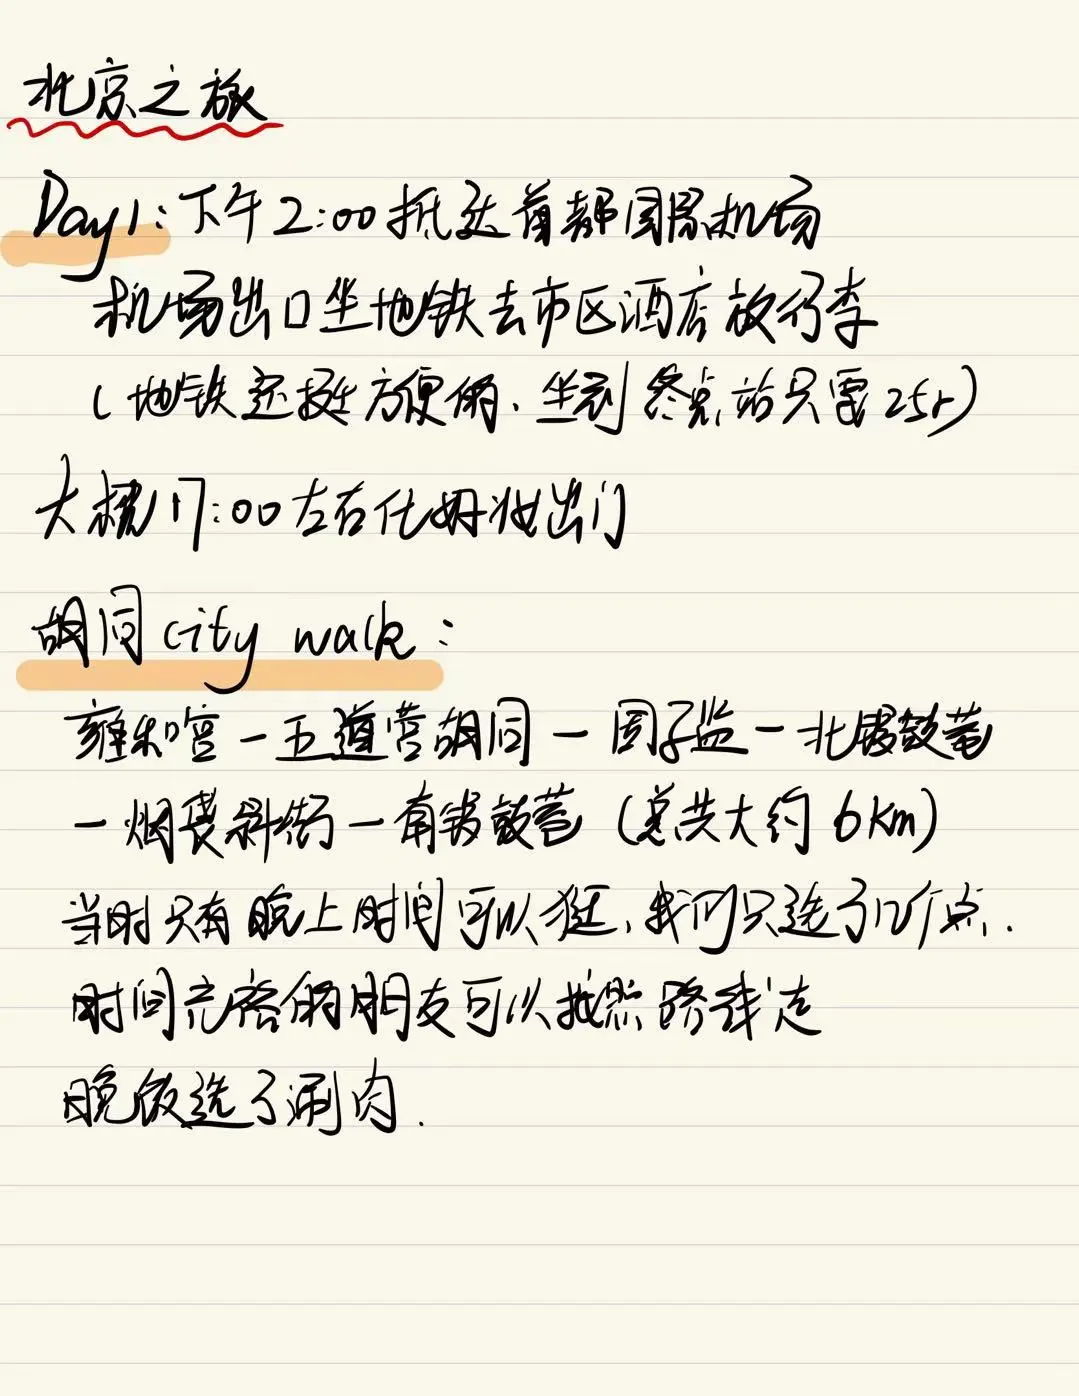 北京之旅
Day1:下午2:00抵达首都国际机场
机场出口坐地铁去市区酒店放行李
(地铁还挺方便的、坐到终点站只需25r)
大概17:00左右化好妆出门
胡同city walk:
雍和宫-五道营胡同-国子监-北锣鼓巷
-烟袋斜街-南锣鼓巷(总共大约6km)
当时只有晚上时间可以逛,我们只选了几个点.
时间充裕的朋友可以按照路线走
晚饭选了涮肉.